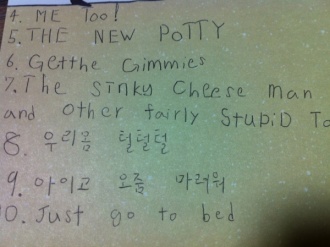 4. ME Too!
5. THE NEW PoTTY
6. Getthe Gimmies
7. The STINky Cheese man
and other fairly StupiD Ta
8. 우리몸 털털털
9. 아이고 요즘 마려워
10. Just go to bed